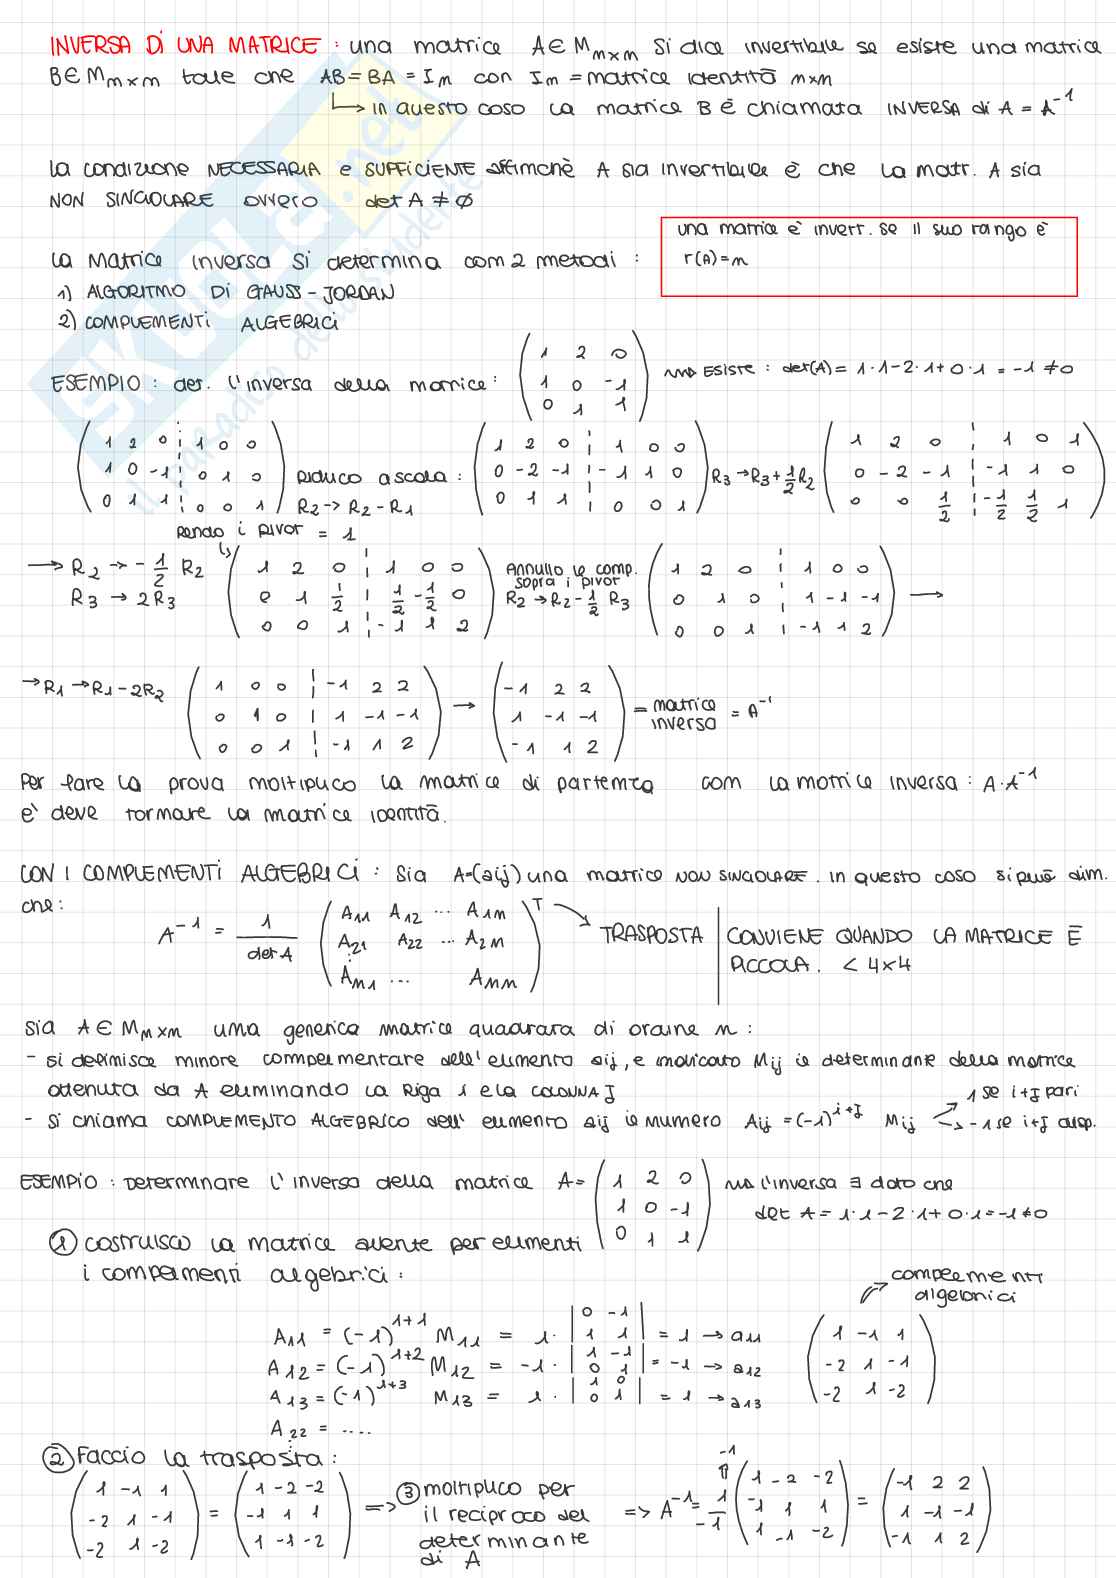 INVERSA DI UNA MATRICE : una matrice A ∈ M_{n×n} si dice invertibile se esiste una matrice
B ∈ M_{n×n} tale che AB = BA = I_n con I_n = matrice identità n×n
↳ in questo caso la matrice B è chiamata INVERSA di A = A^{-1}
la condizione NECESSARIA e SUFFICIENTE affinchè A sia invertibile è che la matr. A sia
NON SINGOLARE ovvero det A ≠ 0
una matrice è invert. se il suo rango è
r(A) = n
La Matrice inversa si determina con 2 metodi :
1) ALGORITMO DI GAUSS - JORDAN
2) COMPLEMENTI ALGEBRICI
ESEMPIO : det. l'inversa della matrice : (1 2 0 / 1 0 -1 / 0 1 1) ⟿ Esiste : det(A) = 1·1 - 2·1 + 0·1 = -1 ≠ 0
(1 2 0 ¦ 1 0 0 / 1 0 -1 ¦ 0 1 0 / 0 1 1 ¦ 0 0 1) Riduco a scala : R2 -> R2 - R1 (1 2 0 ¦ 1 0 0 / 0 -2 -1 ¦ -1 1 0 / 0 1 1 ¦ 0 0 1) R3 → R3 + 1/2 R2 (1 2 0 ¦ 1 0 1 / 0 -2 -1 ¦ -1 1 0 / 0 0 1/2 ¦ -1/2 1/2 1)
Rendo i pivot = 1
→ R2 → -1/2 R2 R3 → 2R3 (1 2 0 ¦ 1 0 0 / 0 1 1/2 ¦ 1/2 -1/2 0 / 0 0 1 ¦ -1 1 2) Annullo le comp. sopra i pivot R2 → R2 - 1/2 R3 (1 2 0 ¦ 1 0 0 / 0 1 0 ¦ 1 -1 -1 / 0 0 1 ¦ -1 1 2) →
→ R1 → R1 - 2R2 (1 0 0 ¦ -1 2 2 / 0 1 0 ¦ 1 -1 -1 / 0 0 1 ¦ -1 1 2) → (-1 2 2 / 1 -1 -1 / -1 1 2) = matrice inversa = A^{-1}
Per fare la prova moltiplico la matrice di partenza con la matrice inversa : A · A^{-1}
e' deve tormare la matrice identità.
CON I COMPLEMENTI ALGEBRICI : Sia A=(aij) una matrice NON SINGOLARE. In questo caso si può dim.
che:
A^{-1} = 1/det A (A11 A12 ... A1n / A21 A22 ... A2n / An1 ... Ann)^T → TRASPOSTA | CONVIENE QUANDO LA MATRICE È
PICCOLA. < 4×4
sia A ∈ M_{n×n} una generica matrice quadrata di ordine n :
- si definisce minore complementare dell' elemento aij, e indicato Mij il determinante della matrice
ottenuta da A eliminando la Riga i e la COLONNA J
- Si chiama COMPLEMENTO ALGEBRICO dell' elemento aij il numero Aij = (-1)^{i+J} Mij → 1 se i+J pari → -1 se i+J disp.
ESEMPIO : Determinare l'inversa della matrice A = (1 2 0 / 1 0 -1 / 0 1 1) ⟿ l'inversa ∃ dato che
det A = 1·1 - 2·1 + 0·1 = -1 ≠ 0
① costruisco la matrice avente per elementi
i complementi algebrici :
complementi
algebrici
A11 = (-1)^{1+1} M11 = 1 · |0 -1 / 1 1| = 1 → a11 (1 -1 1 / -2 1 -1 / -2 1 -2)
A12 = (-1)^{1+2} M12 = -1 · |1 -1 / 0 1| = -1 → a12
A13 = (-1)^{1+3} M13 = 1 · |1 0 / 0 1| = 1 → a13
A22 = ....
② Faccio la trasposta :
(1 -1 1 / -2 1 -1 / -2 1 -2) = (1 -2 -2 / -1 1 1 / 1 -1 -2) => ③ moltiplico per il reciproco del determinante di A => A^{-1} = 1/-1 ⇑ -1 (1 -2 -2 / -1 1 1 / 1 -1 -2) = (-1 2 2 / 1 -1 -1 / -1 1 2)
SKUOLA.net
il paradiso dello studente